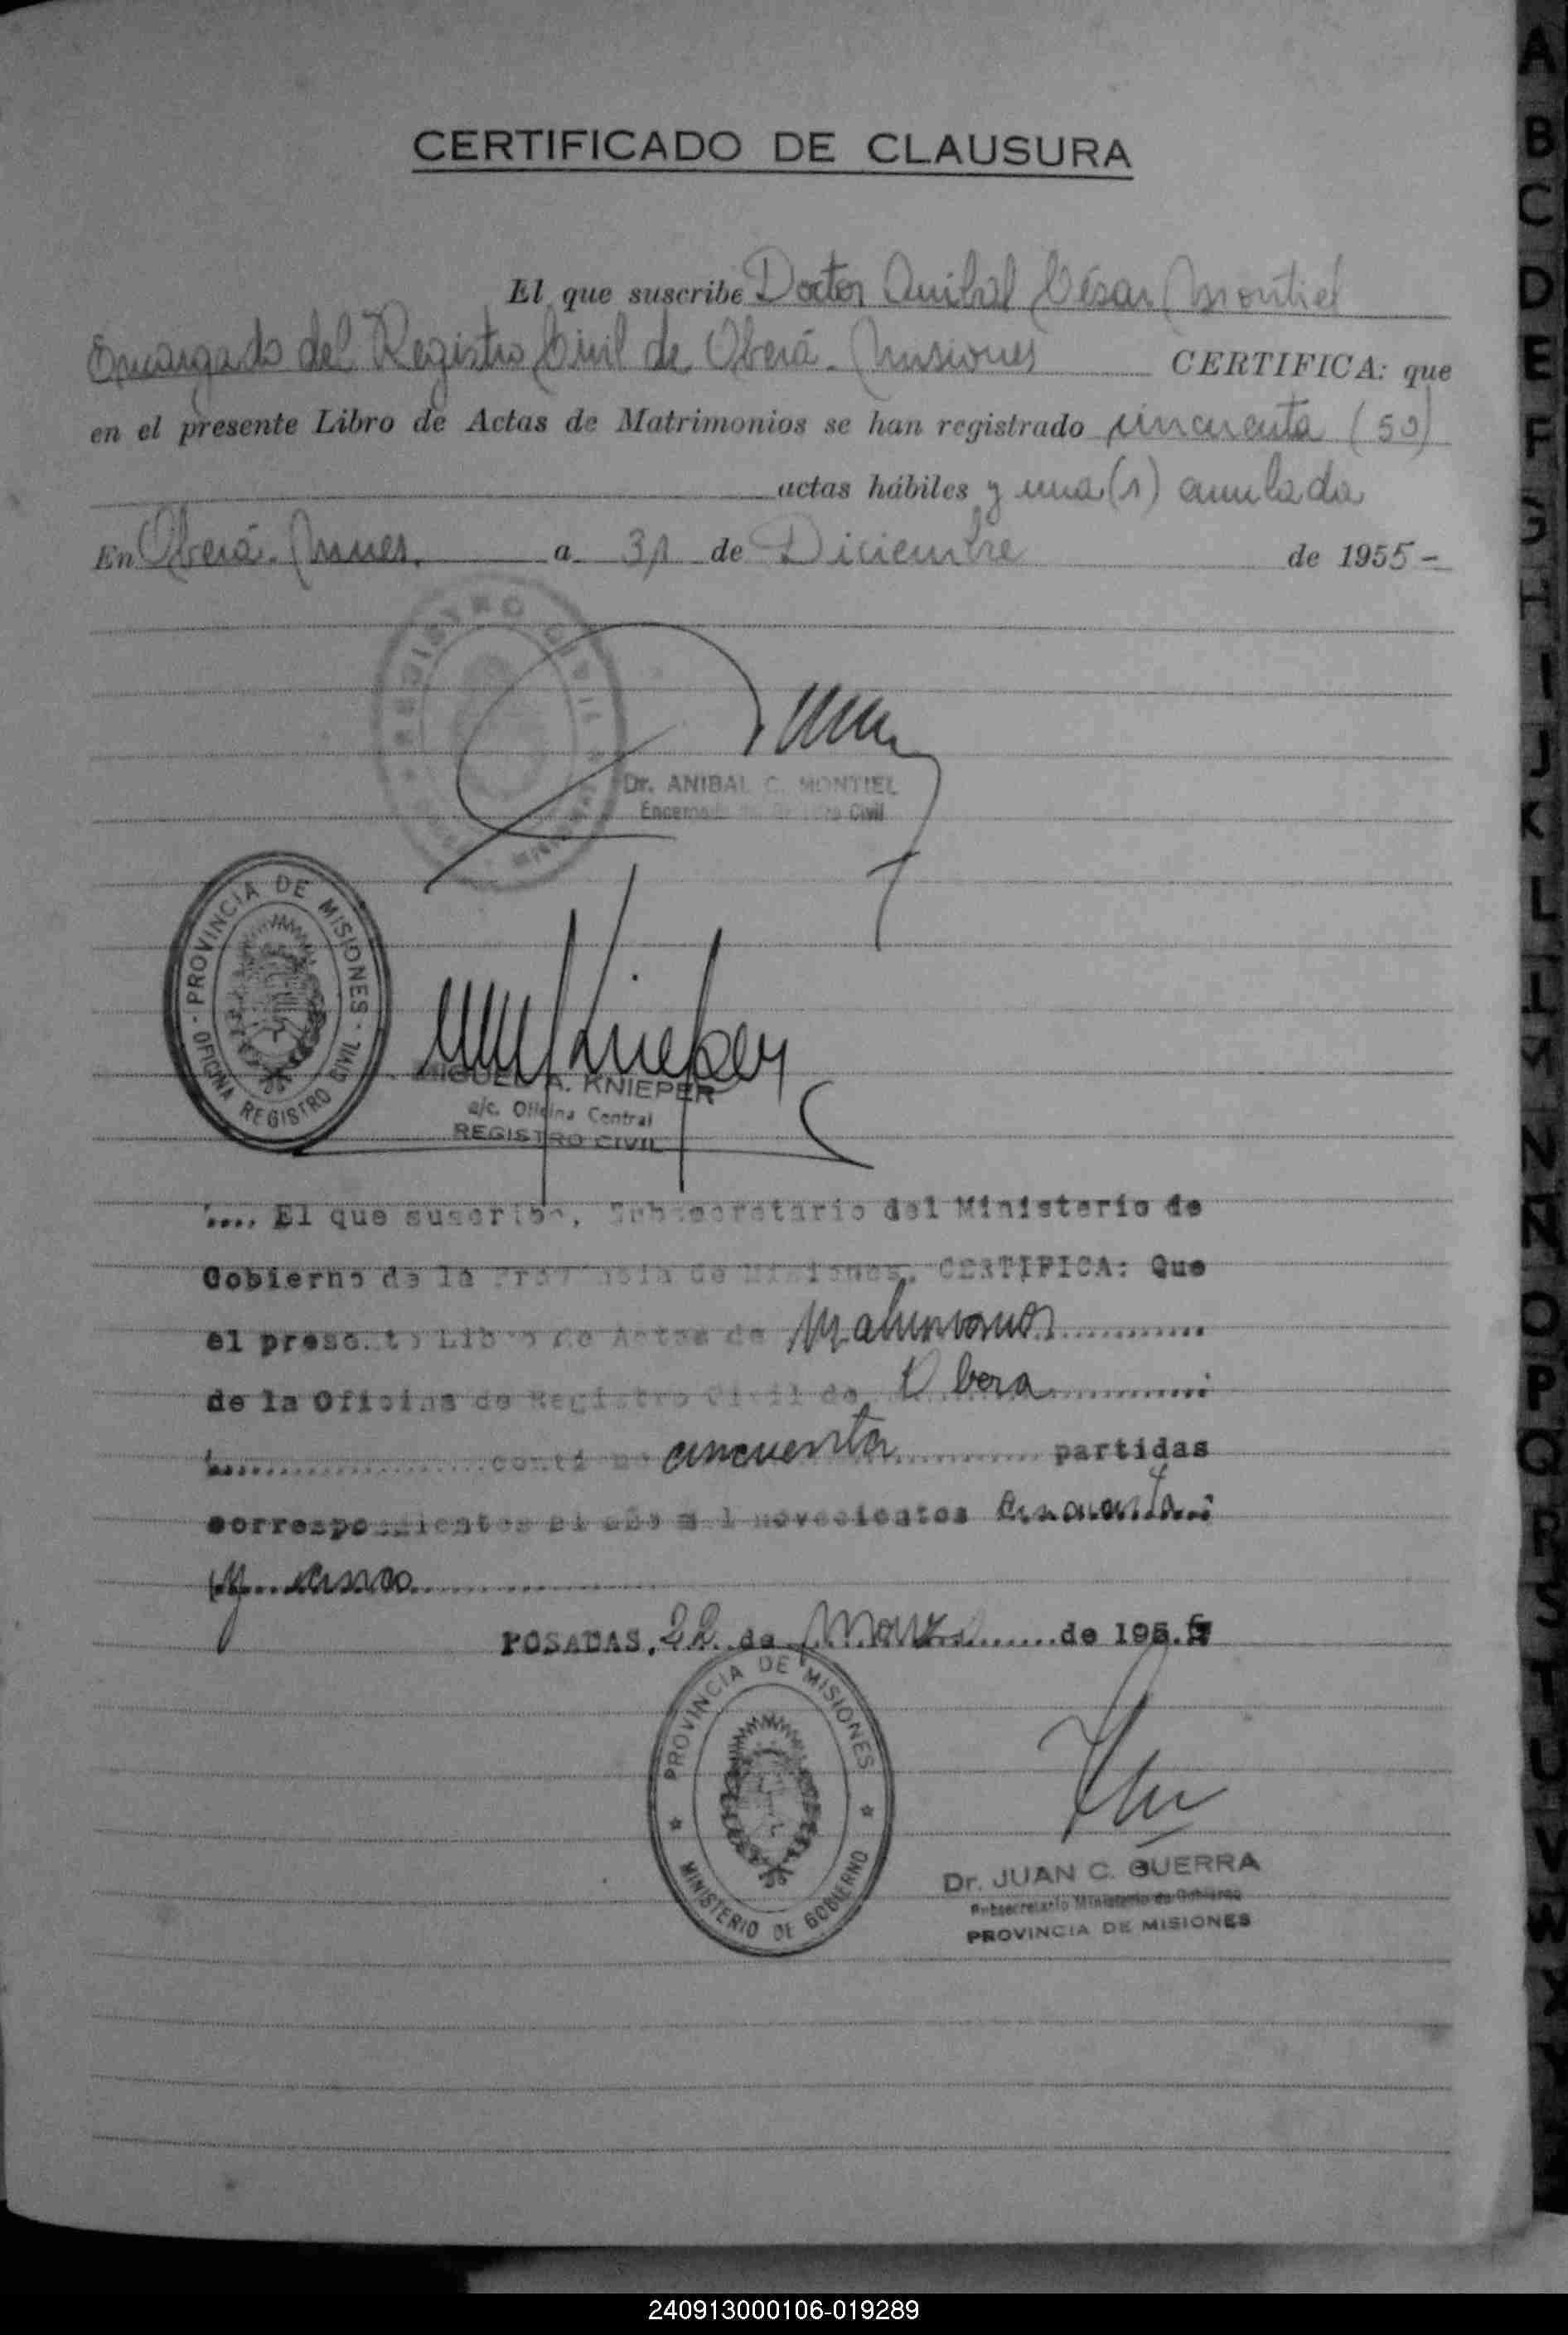 CERTIFICADO DE CLAUSURA
El que suscribe Doctor Anibal César Montiel
Encargado del Registro Civil de Oberá - Misiones CERTIFICA: que
en el presente Libro de Actas de Matrimonios se han registrado cincuenta (50)
actas hábiles y una (1) anulada
En Oberá - Mnes. a 31 de Diciembre de 1955 -
REGISTRO CIVIL
Dr. ANIBAL C. MONTIEL
Encargado del Registro Civil
PROVINCIA DE MISIONES - OFICINA REGISTRO CIVIL -
Knieper
MIGUEL A. KNIEPER
a/c. Oficina Central
REGISTRO CIVIL
.... El que suscribe, Subsecretario del Ministerio de
Gobierno de la Provincia de Misiones, CERTIFICA: Que
el presente Libro de Actas de Matrimonios ............
de la Oficina de Registro Civil de Obera ............
.................... contiene cincuenta ............ partidas
correspondientes al año mil novecientos cincuenta
y cinco ....................
POSADAS, 22 de Marzo ........ de 195.
PROVINCIA DE MISIONES ★ MINISTERIO DE GOBIERNO ★
Dr. JUAN C. GUERRA
Subsecretario Ministerio de Gobierno
PROVINCIA DE MISIONES
A
B
C
D
E
F
G
H
I
J
K
L
LL
M
N
Ñ
O
P
Q
R
S
T
U
V
W
X
Y
240913000106-019289